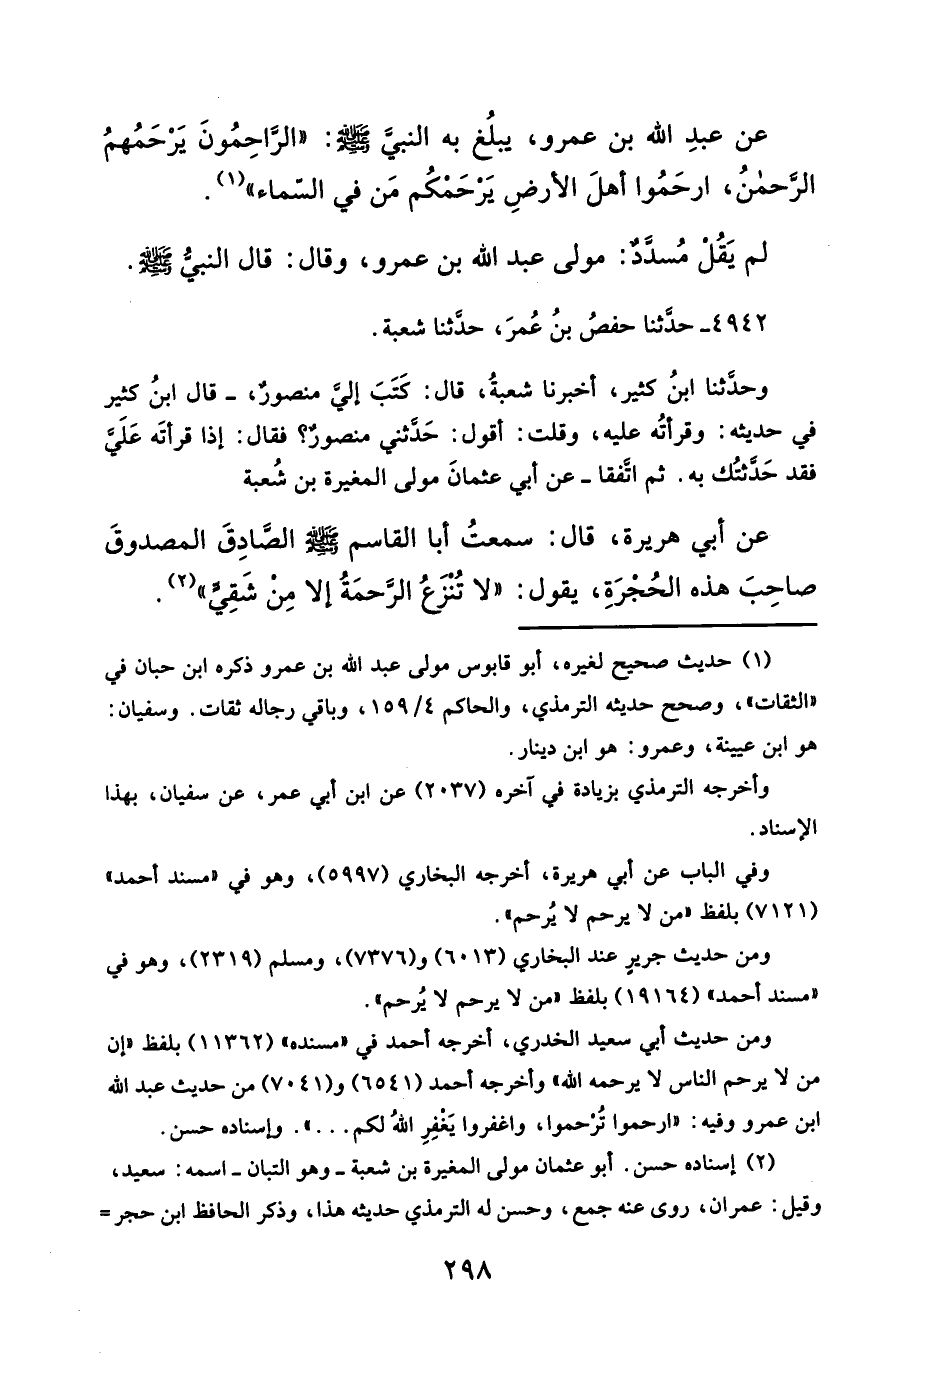 عن عبدِ الله بن عمرو، يبلُغ به النبيَّ ﷺ: «الرَّاحِمُونَ يَرْحَمُهمُ
الرَّحمٰنُ، ارحَمُوا أهلَ الأرضِ يَرْحَمْكُم مَن في السّماء»(١).
لم يَقُلْ مُسدَّدٌ: مولى عبد الله بن عمرو، وقال: قال النبيُّ ﷺ.
٤٩٤٢ـ حدَّثنا حفصُ بنُ عُمرَ، حدَّثنا شعبة.
وحدَّثنا ابنُ كثير، أخبرنا شعبةُ، قال: كَتَبَ إليَّ منصورٌ، ـ قال ابنُ كثير
في حديثه: وقرأتُه عليه، وقلت: أقول: حَدَّثني منصورٌ؟ فقال: إذا قرأتَه عَلَيَّ
فقد حَدَّثتُك به. ثم اتَّفقا ـ عن أبي عثمانَ مولى المغيرة بن شُعبة
عن أبي هريرة، قال: سمعتُ أبا القاسم ﷺ الصَّادِقَ المصدوقَ
صاحِبَ هذه الحُجْرَةِ، يقول: «لا تُنْزَعُ الرَّحمَةُ إلا مِنْ شَقِيٍّ»(٢).
(١) حديث صحيح لغيره، أبو قابوس مولى عبد الله بن عمرو ذكره ابن حبان في
«الثقات»، وصحح حديثه الترمذي، والحاكم ١٥٩/٤، وباقي رجاله ثقات. وسفيان:
هو ابن عيينة، وعمرو: هو ابن دينار.
وأخرجه الترمذي بزيادة في آخره (٢٠٣٧) عن ابن أبي عمر، عن سفيان، بهذا
الإسناد.
وفي الباب عن أبي هريرة، أخرجه البخاري (٥٩٩٧)، وهو في «مسند أحمد»
(٧١٢١) بلفظ «من لا يرحم لا يُرحم».
ومن حديث جريرٍ عند البخاري (٦٠١٣) و(٧٣٧٦)، ومسلم (٢٣١٩)، وهو في
«مسند أحمد» (١٩١٦٤) بلفظ «من لا يرحم لا يُرحم».
ومن حديث أبي سعيد الخدري، أخرجه أحمد في «مسنده» (١١٣٦٢) بلفظ «إن
من لا يرحم الناس لا يرحمه الله» وأخرجه أحمد (٦٥٤١) و(٧٠٤١) من حديث عبد الله
ابن عمرو وفيه: «ارحموا تُرْحموا، واغفروا يَغْفِرِ اللهُ لكم...». وإسناده حسن.
(٢) إسناده حسن. أبو عثمان مولى المغيرة بن شعبة ـ وهو التبان ـ اسمه: سعيد،
وقيل: عمران، روى عنه جمع، وحسن له الترمذي حديثه هذا، وذكر الحافظ ابن حجر =
٢٩٨